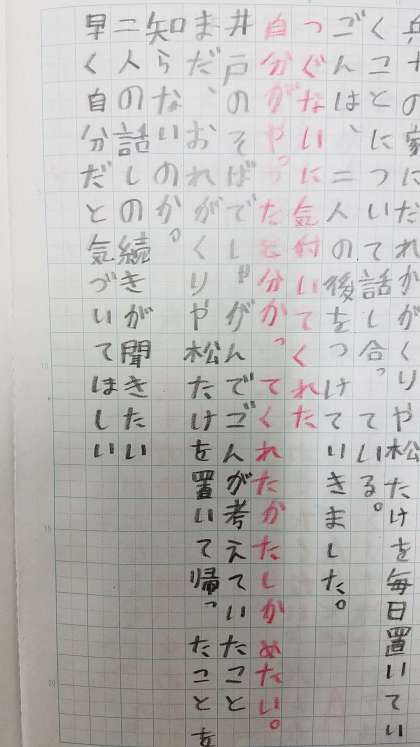 兵十の家にだれがくりや松たけを毎日置いてい
くことについて話し合っている。
ごんは、二人の後をつけていきました。
つぐないに気付いてくれた
自分がやったと分かってくれたかたしかめたい。
井戸のそばでしゃがんでごんが考えていたこと
まだ、おれがくりや松たけを置いて帰ったこと
知らないのか。
二人の話しの続きが聞きたい
早く自分だと気づいてほしい